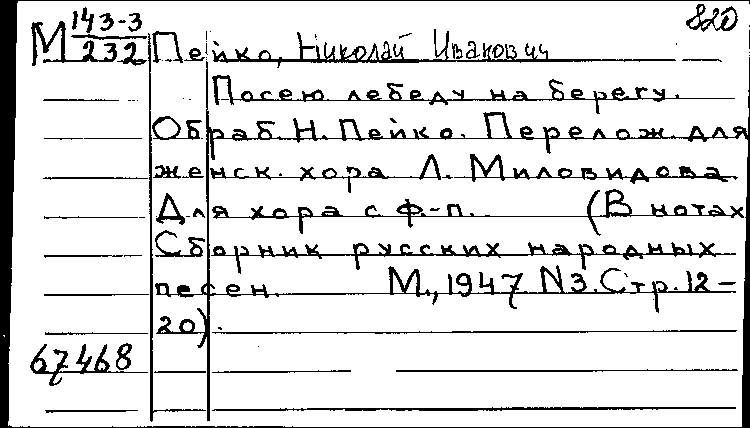 820
М 143-3/232 Пейко, Николай Иванович
Посею лебеду на берегу.
Обраб. Н. Пейко. Перелож. для
женск. хора Л. Миловидова.
Для хора с ф-п. (В нотах
Сборник русских народных
песен. М., 1947 N3. Стр. 12-
20).
67468